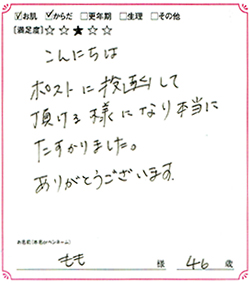 ☑お肌 ☑からだ □更年期 □生理 □その他
[満足度]☆☆★☆☆
こんにちは
ポストに投函して
頂ける様になり本当に
たすかりました。
ありがとうございます.
お名前(本名orペンネーム)
もも 様 46 歳